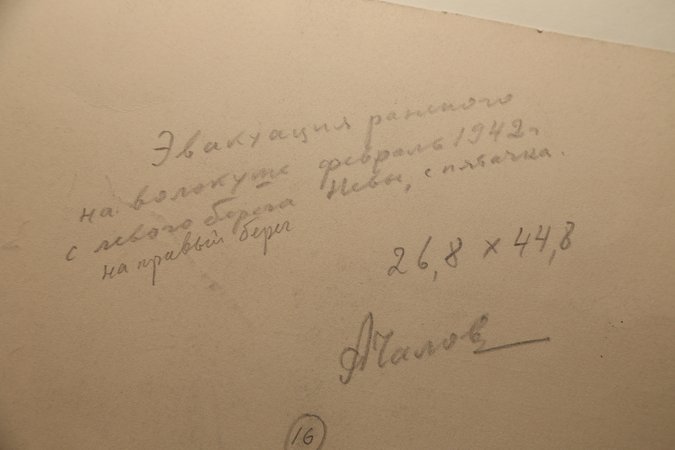 Эвакуация раненого
на волокуше февраль 1942 г.
с левого берега Невы, с пятачка.
на правый берег
26,8 × 44,8
АЧалов
16